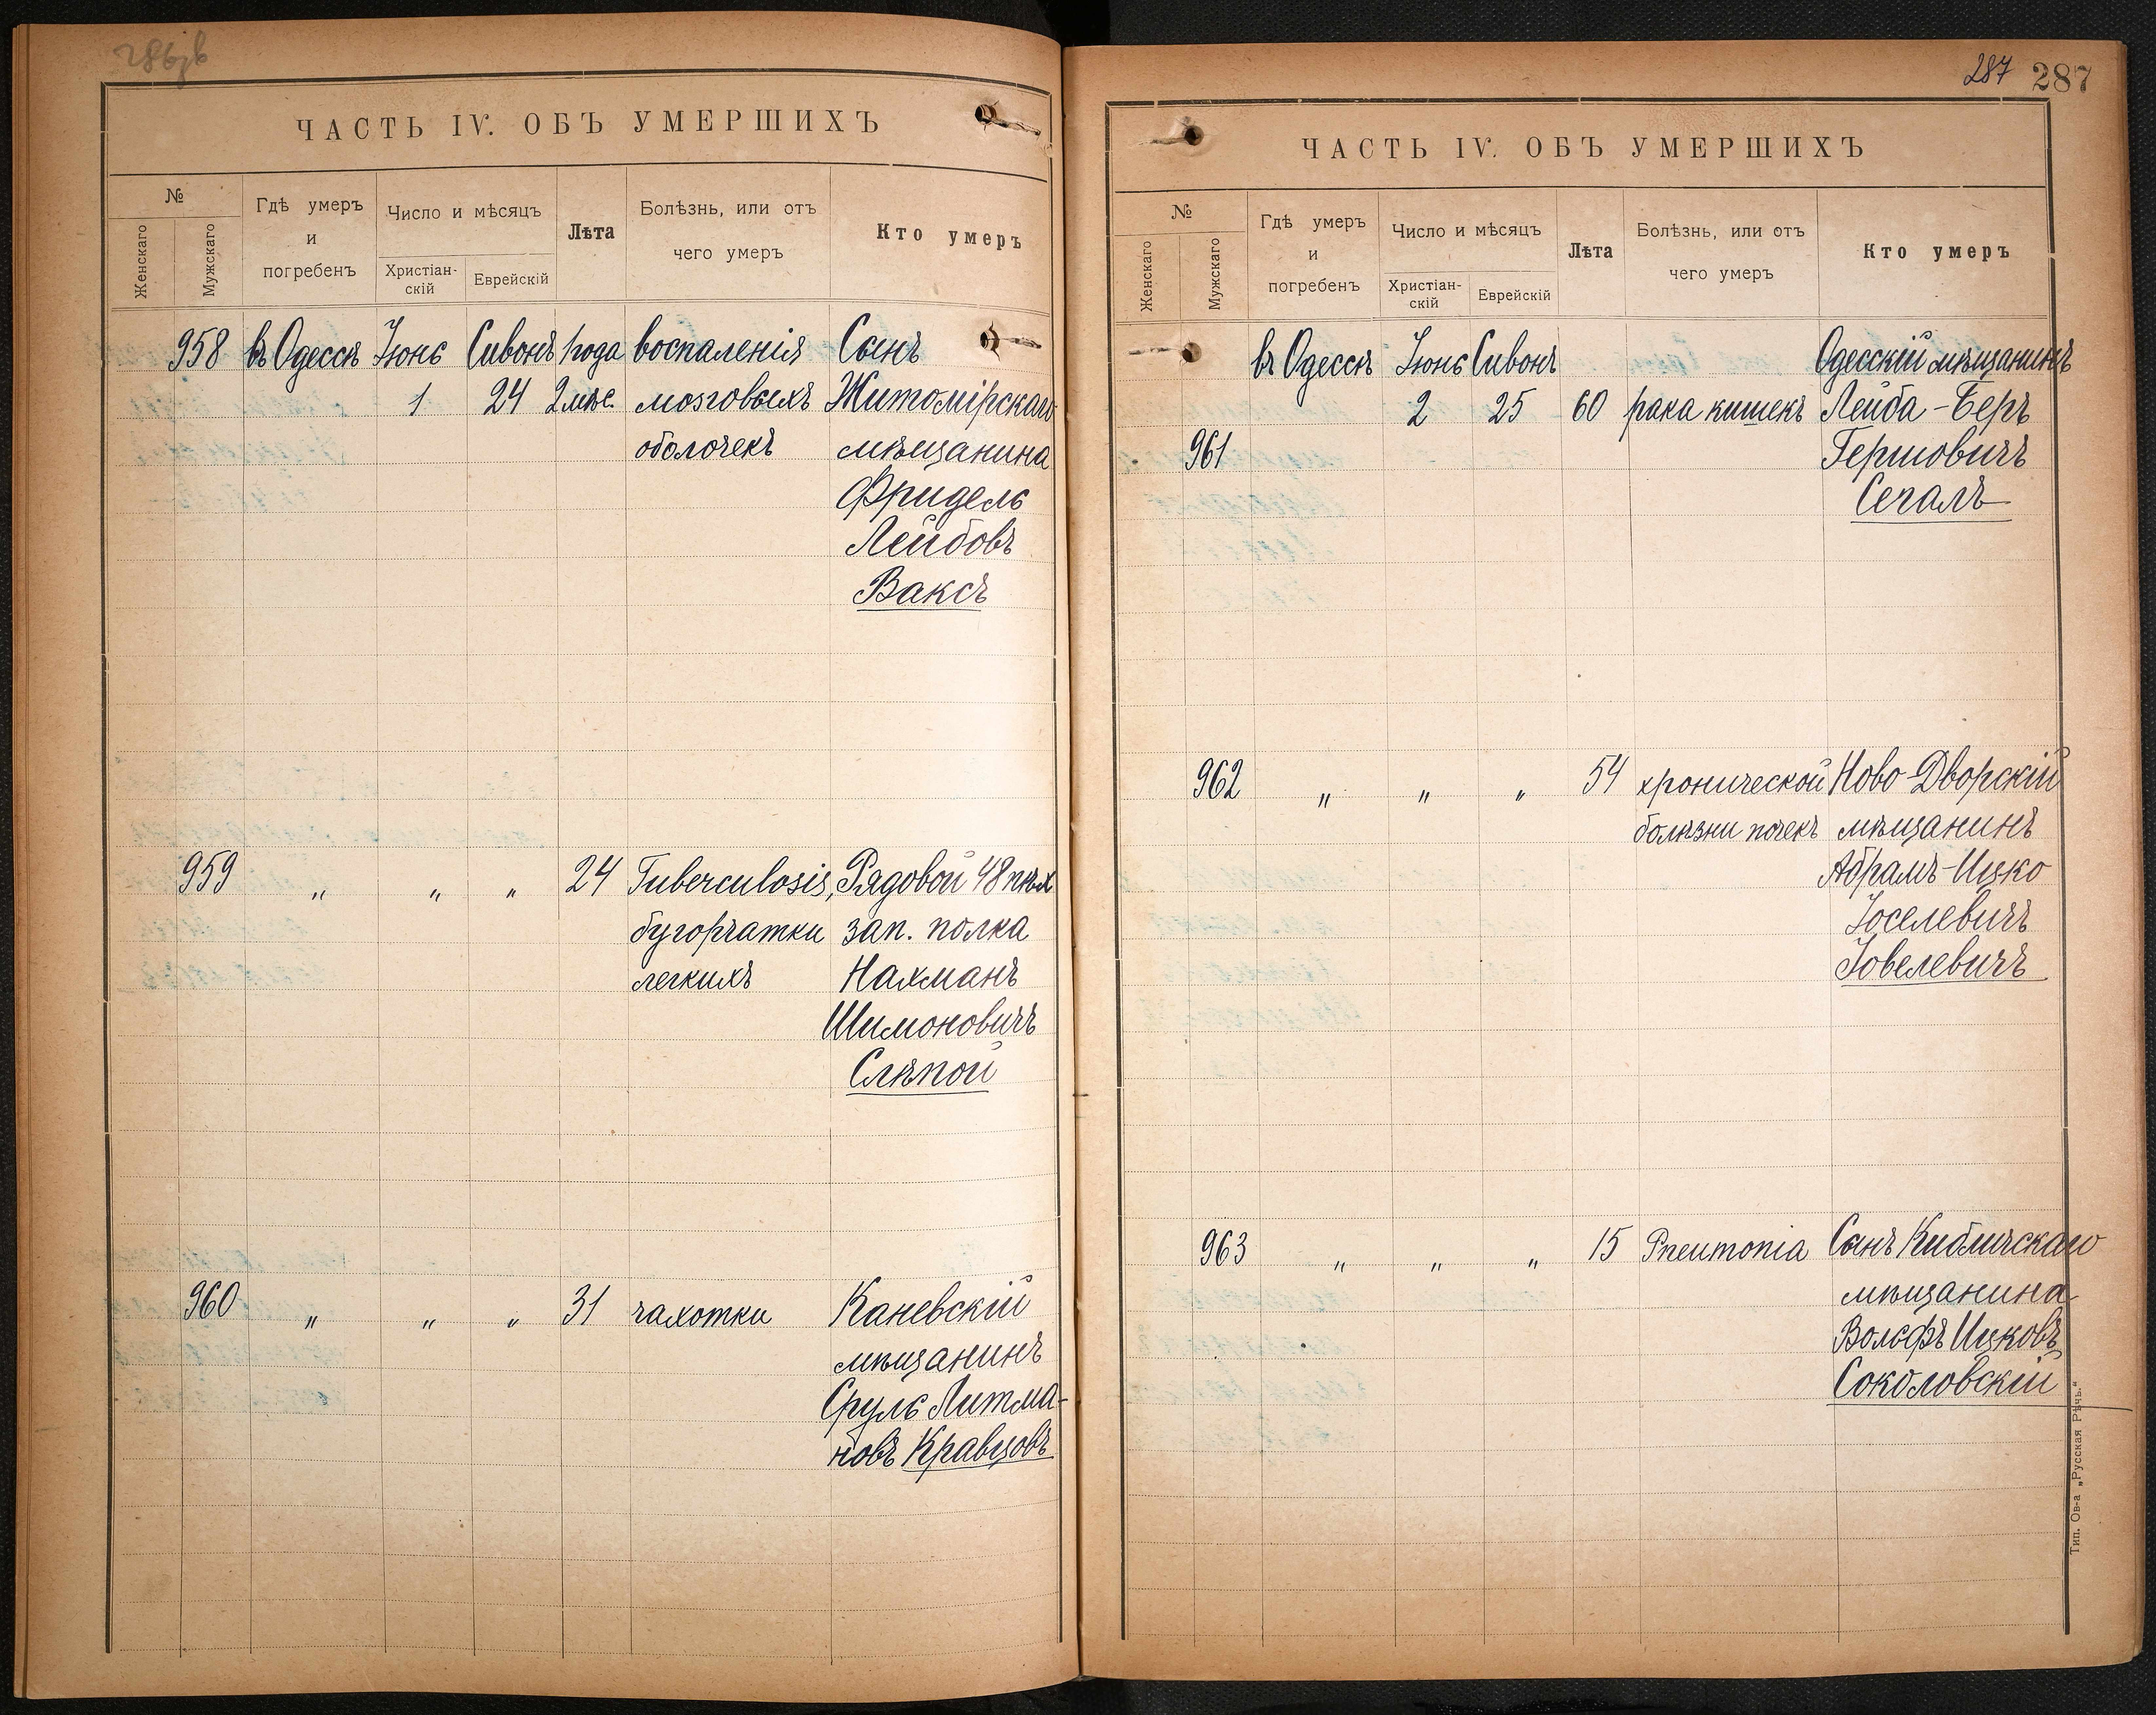 ЧАСТЬ IV. ОБЪ УМЕРШИХЪ
№
Женскаго
Мужскаго
Гдѣ умеръ
и
погребенъ
Число и мѣсяцъ
Христіан-
скій
Еврейскій
Лѣта
Болѣзнь, или отъ
чего умеръ
Кто умеръ
958 въ Одессѣ Іюнь Сивонъ года воспаленія Сынъ
1 24 2 мѣс. мозговыхъ Житомірскаго
оболочекъ мѣщанина
Фридель
Лейбовъ
Ваксъ
959 „ „ „ 24 Tuberculosis, Рядовой 48 пѣх
бугорчатки зап. полка
легкихъ Нахманъ
Шимоновичъ
Слѣпой
960 „ „ „ 31 чахотки Каневскій
мѣщанинъ
Сруль Литма-
новъ Кравцовъ
287 287
ЧАСТЬ IV. ОБЪ УМЕРШИХЪ
№
Женскаго
Мужскаго
Гдѣ умеръ
и
погребенъ
Число и мѣсяцъ
Христіан-
скій
Еврейскій
Лѣта
Болѣзнь, или отъ
чего умеръ
Кто умеръ
въ Одессѣ Іюнь Сивонъ Одесскій мѣщанинъ
2 25 60 рака кишекъ Лейба-Беръ
961 Гершовичъ
Сегалъ
962 „ „ „ 54 хронической Ново-Дворскій
болѣзни почекъ мѣщанинъ
Абрамъ-Ицко
Іоселевичъ
Іовелевичъ
963 „ „ „ 15 Pneumonia Сынъ Кибличскаго
мѣщанина
Вольфъ Ицковъ
Соколовскій
Тип. Ов-а „Русская Рѣчь.“